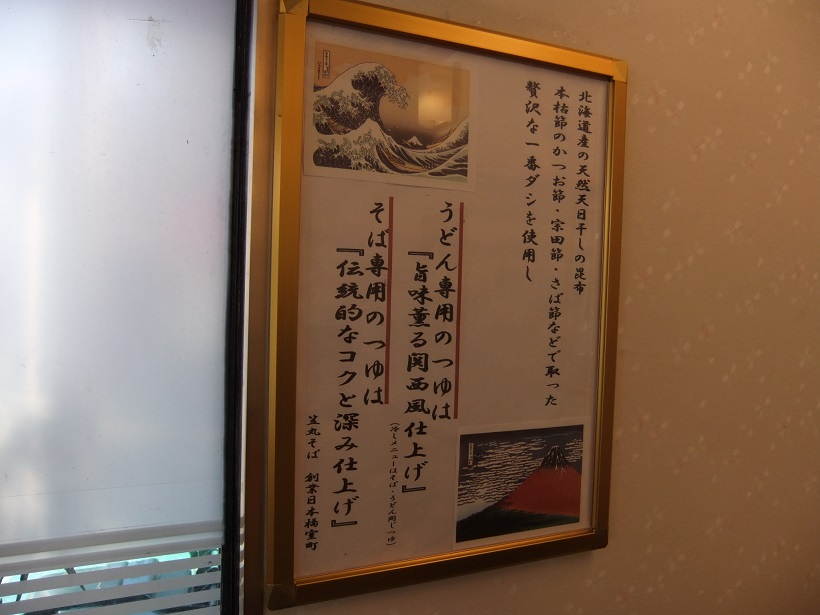 北海道産の天然天日干しの昆布
本枯節のかつお節・宗田節・さば節などで取った
贅沢な一番ダシを使用し
うどん専用のつゆは
『旨味薫る関西風仕上げ』
（冷しメニューはそば・うどん同じつゆ）
そば専用のつゆは
『伝統的なコクと深み仕上げ』
笠丸そば 創業日本橋室町